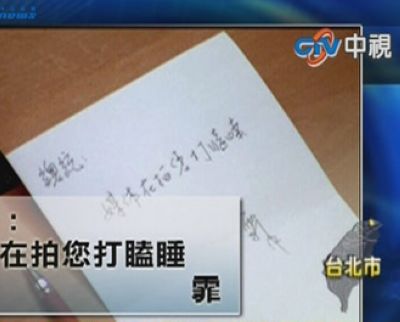 news
CTV中視
總統：
媒体在拍您打瞌睡
：
在拍您打瞌睡
霏
台北市